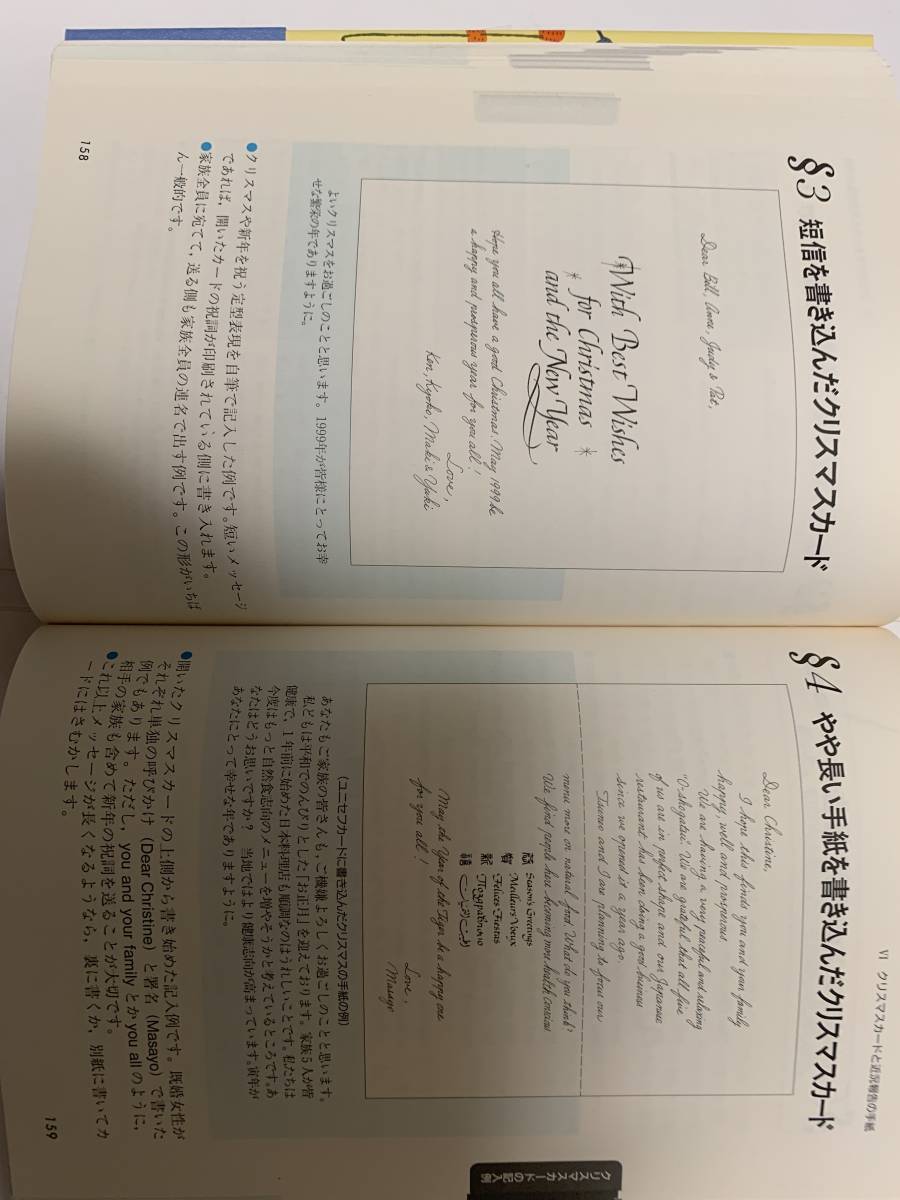 §3 短信を書き込んだクリスマスカード
Dear Bill, Anne, Judy & Pat,
With Best Wishes
for Christmas
and the New Year
Hope you all have a good Christmas. May 1999 be
a happy and prosperous year for you all!
Love,
Ken, Kyoko, Maki & Yuki
よいクリスマスをお過ごしのことと思います。1999年が皆様にとってお幸
せな繁栄の年でありますように。
●クリスマスや新年を祝う定型表現を自筆で記入した例です。短いメッセージ
であれば，開いたカードの祝詞が印刷されている側に書き入れます。
●家族全員に宛てて，送る側も家族全員の連名で出す例です。この形がいちば
ん一般的です。
158
VI クリスマスカードと近況報告の手紙
§4 やや長い手紙を書き込んだクリスマスカード
Dear Christine,
I hope this finds you and your family
happy, well and prosperous.
We are having a very peaceful and relaxing
"O-shogatsu". We are grateful that all five
of us are in perfect shape and our Japanese
restaurant has been doing a good business
since we opened it a year ago.
Tsuneo and I are planning to focus our
menu more on natural food. What do you think?
We find people here becoming more health conscious.
Season's Greetings
Meilleurs Vœux
Felices Fiestas
May the Year of the Tiger be a happy one
for you all!
Love,
Masayo
(ユニセフカードに書き込んだクリスマスの手紙の例)
あなたもご家族の皆さんも，ご機嫌よろしくお過ごしのことと思います。
私どもは平和でのんびりとした「お正月」を迎えております。家族5人が皆
健康で，1年前に始めた日本料理店も順調なのはうれしいことです。私たちは
今度はもっと自然食志向のメニューを増やそうかと考えているところです。あ
なたはどうお思いですか？ 当地ではより健康志向が高まっています。寅年が
あなたにとって幸せな年でありますように。
●開いたクリスマスカードの上側から書き始めた記入例です。既婚女性が
それぞれ単独の呼びかけ（Dear Christine）と署名（Masayo）で書いた
例でもあります。ただし，you and your family とか you all のように，
相手の家族も含めて新年の祝詞を送ることが大切です。
●これ以上メッセージが長くなるようなら，裏に書くか，別紙に書いてカ
ードにはさむかします。
159
クリスマスカードの記入例